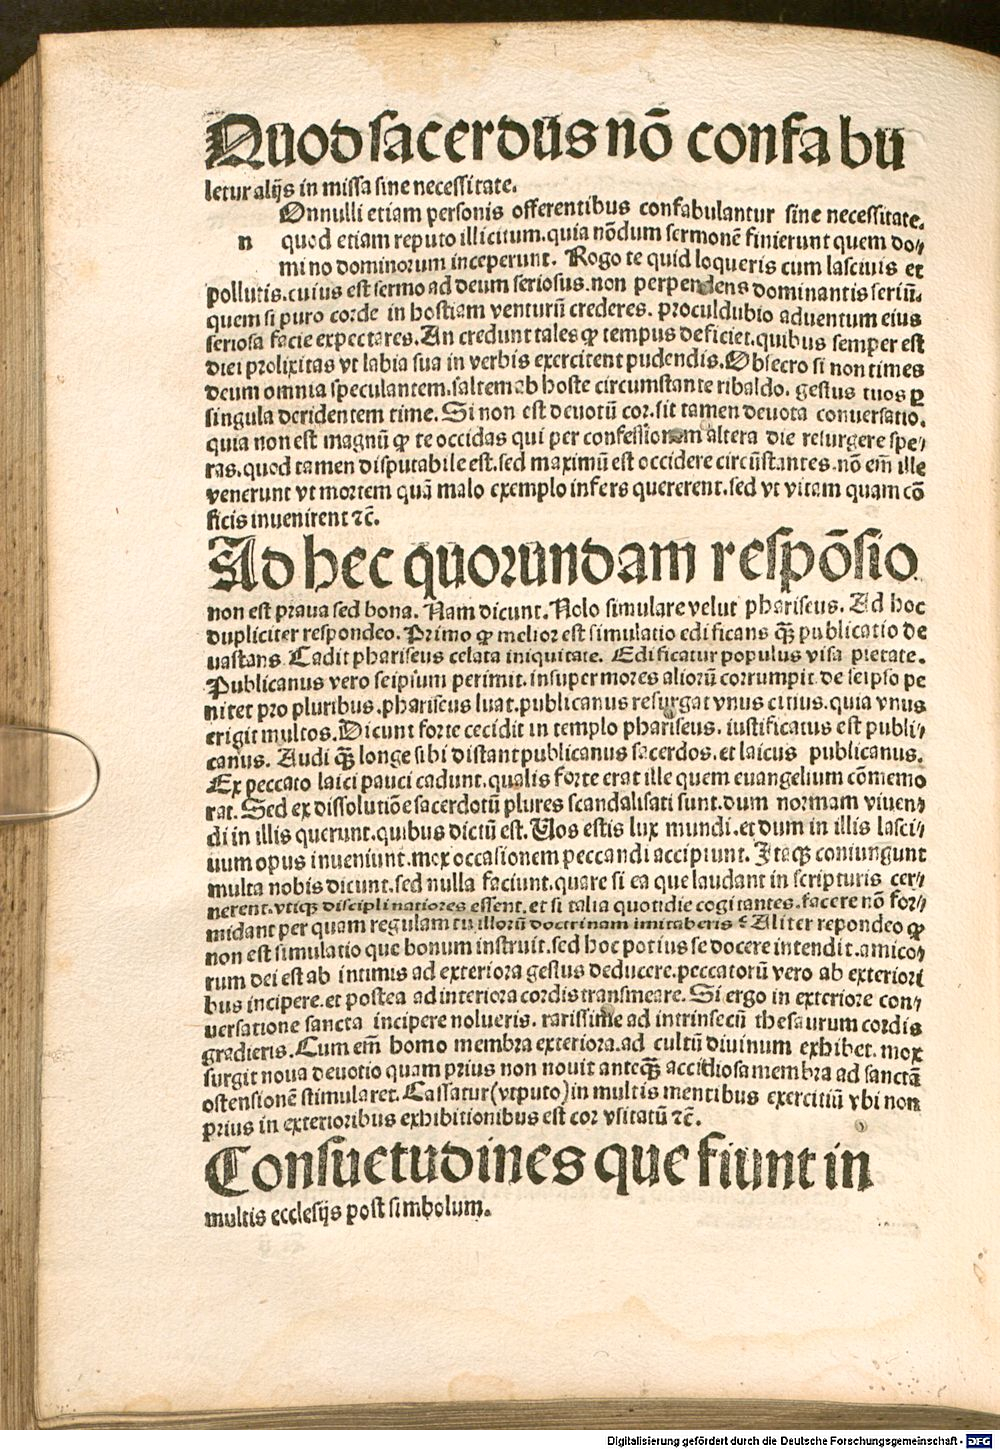 Quod sacerdus nō confabu
letur alijs in missa sine necessitate.
Onnulli etiam personis offerentibus confabulantur sine necessitate.
n quod etiam reputo illicitum. quia nōdum sermonē finierunt quem do⸗
mino dominorum inceperunt. Rogo te quid loqueris cum lasciuis et
pollutis. cuius est sermo ad deum seriosus. non perpendens dominantis seriū.
quem si puro corde in hostiam venturū crederes. proculdubio aduentum eius
seriosa facie expectares. An credunt tales ꝙ tempus deficiet. quibus semper est
diei prolixitas vt labia sua in verbis exercitent pudendis. Obsecro si non times
deum omnia speculantem. saltem ab hoste circumstante ribaldo. gestus tuos ꝑ
singula deridentem time. Si non est deuotū cor. sit tamen deuota conuersatio.
quia non est magnū ꝙ te occidas qui per confessionem altera die resurgere spe⸗
ras. quod tamen disputabile est. sed maximū est occidere circūstantes. nō em̄ ille
venerunt vt mortem quā malo exemplo infers quererent. sed vt vitam quam cō
ficis inuenirent ⁊c̄.
Ad hec quorundam respōsio
non est praua sed bona. Nam dicunt. Nolo simulare velut phariseus. Ad hoc
dupliciter respondeo. Primo ꝙ melior est simulatio edificans q̄ꝫ publicatio de
uastans. Cadit phariseus celata iniquitate. Edificatur populus visa pietate.
Publicanus vero seipsum perimit. insuper mores aliorū corrumpit. de seipso pe
nitet pro pluribus. phariseus luat. publicanus resurgat vnus citius. quia vnus
erigit multos. Dicunt forte cecidit in templo phariseus. iustificatus est publi⸗
canus. Audi q̄ꝫ longe sibi distant publicanus sacerdos. et laicus publicanus.
Ex peccato laici pauci cadunt. qualis forte erat ille quem euangelium cōmemo
rat. Sed ex dissolutiōe sacerdotū plures scandalisati sunt. dum normam viuen⸗
di in illis querunt. quibus dictū est. Vos estis lux mundi. et dum in illis lasci⸗
uum opus inueniunt. mox occasionem peccandi accipiunt. Itaqꝫ coniungunt
multa nobis dicunt. sed nulla faciunt. quare si ea que laudant in scripturis cer⸗
nerent. vtiqꝫ disciplinatiores essent. et si talia quotidie cogitantes. facere nō for⸗
midant per quam regulam tu illorū doctrinam imitaberis? Aliter repondeo ꝙ
non est simulatio que bonum instruit. sed hoc potius se docere intendit. amico⸗
rum dei est ab intimis ad exteriora gestus deducere. peccatorū vero ab exteriori
bus incipere. et postea ad interiora cordis transmeare. Si ergo in exteriore con⸗
uersatione sancta incipere nolueris. rarissime ad intrinsecū thesaurum cordis
gradieris. Cum em̄ homo membra exteriora. ad cultū diuinum exhibet. mox
surgit noua deuotio quam prius non nouit anteq̄ꝫ accidiosa membra ad sanctā
ostensionē stimularet. Cassatur (vt puto) in multis mentibus exercitiū vbi non
prius in exterioribus exhibitionibus est cor vsitatū ⁊c̄.
Consuetudines que fiunt in
multis ecclesijs post simbolum.
Digitalisierung gefördert durch die Deutsche Forschungsgemeinschaft - DFG